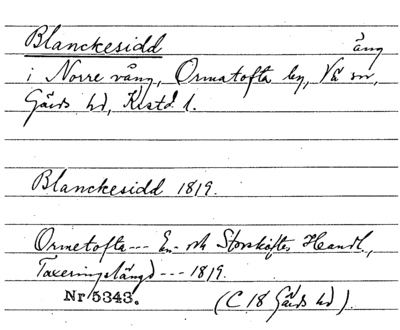 Blanckesidd äng
i Norre vång, Ormatofta by, Vä sn,
Gärds hd, Kstd l.
Blanckesidd 1819.
Ormetofta--- En- och Storskiftes Handl.,
Taxeringslängd --- 1819.
Nr 5343. (C 18 Gärds hd).